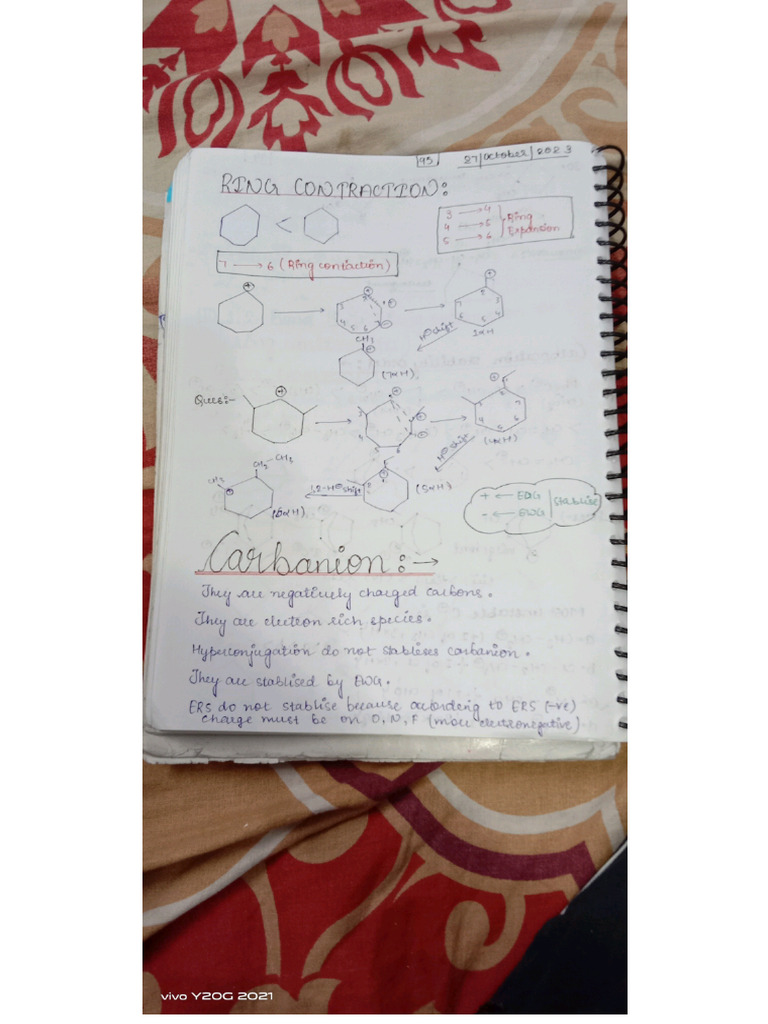 95 27/October/2023
RING CONTRACTION:
<
3 → 4
4 → 5
5 → 6
Ring Expansion
7 → 6 (Ring contaction)
1αH
H⊖ shift
CH3
(7αH)
Ques:-
(4αH)
H⊖ shift
(5αH)
1,2-H⊖ shift
CH3
CH2-CH3
(6αH)
+ ← EDG
- ← EWG
Stablise
Carbanion :→
They are negatively charged carbons.
They are electron rich species.
Hyperconjugation do not stablises carbanion.
They are stablised by EWG.
ERS do not stablise because according to ERS (-ve)
charge must be on O, N, F (more electronegative)
vivo Y20G 2021